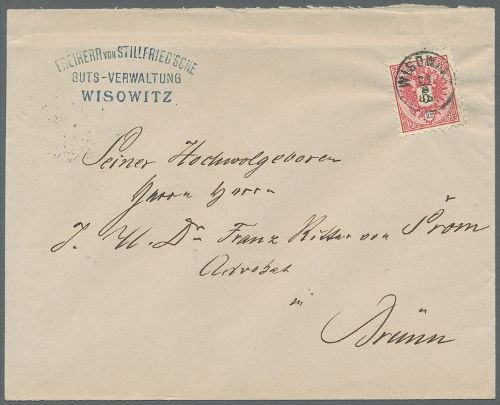 FREIHERR VON STILLFRIED'SCHE
GUTS-VERWALTUNG
WISOWITZ
WISOWI
5
Seiner Hochwolgeboren
Herrn Herrn
J. U. Dr Franz Ritter von Šrom
Advokat
in
Brünn